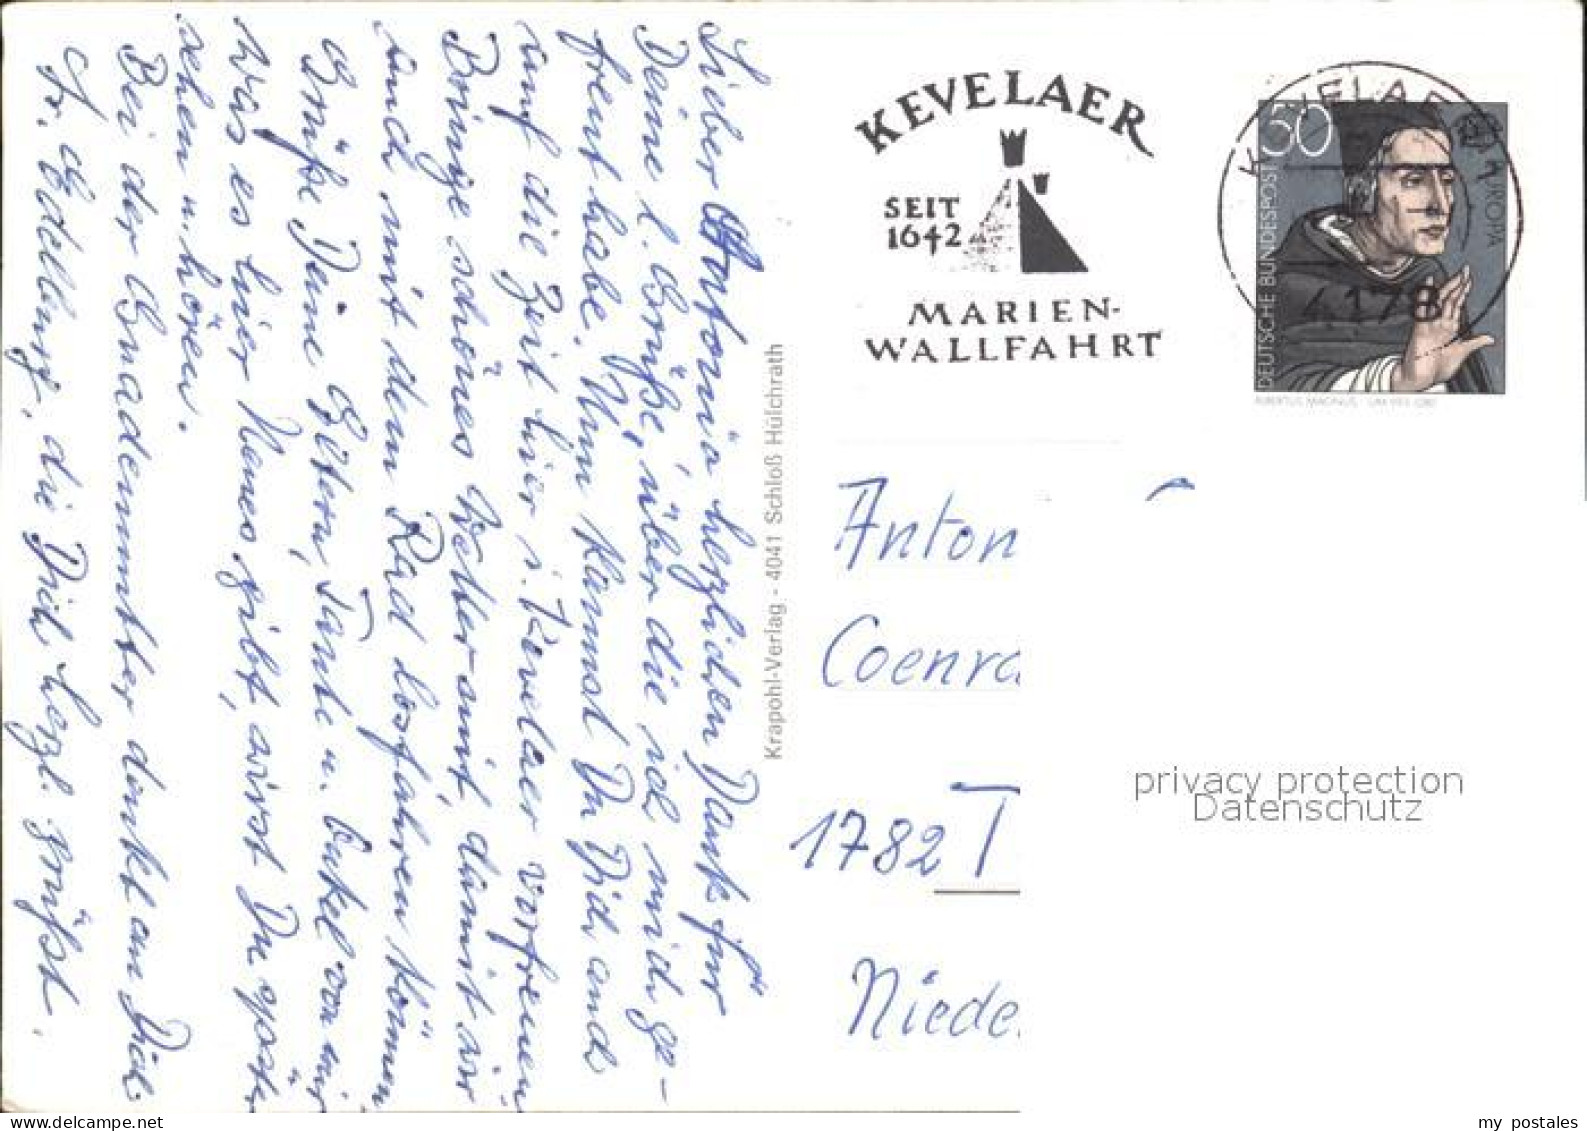 Lieber Antonia herzlichen Dank für
Deine l. Grüße, über die ich mich ge-
freut habe. Nun kannst Du Dich auch
auf die Zeit hier i. Kevelaer vorfreuen
Bringe schönes Wetter mit, damit wir
auch mit dem Rad losfahren können
Grüße Deine Eltern, Tante u. Onkel von mir
Was es hier Neues gibt, wirst Du später
sehen u. hören.
Bei der Gnadenmutter denkt an Dich
die Dich herzl. grüßt.
Krapohl-Verlag - 4041 Schloß Hülchrath
KEVELAER
SEIT
1642
MARIEN-
WALLFAHRT
KEVELAER
4178
50
DEUTSCHE BUNDESPOST
EUROPA
ALBERTUS MAGNUS
Anton
Coenra
1782 T
Niede
privacy protection
Datenschutz
my postales
www.delcampe.net